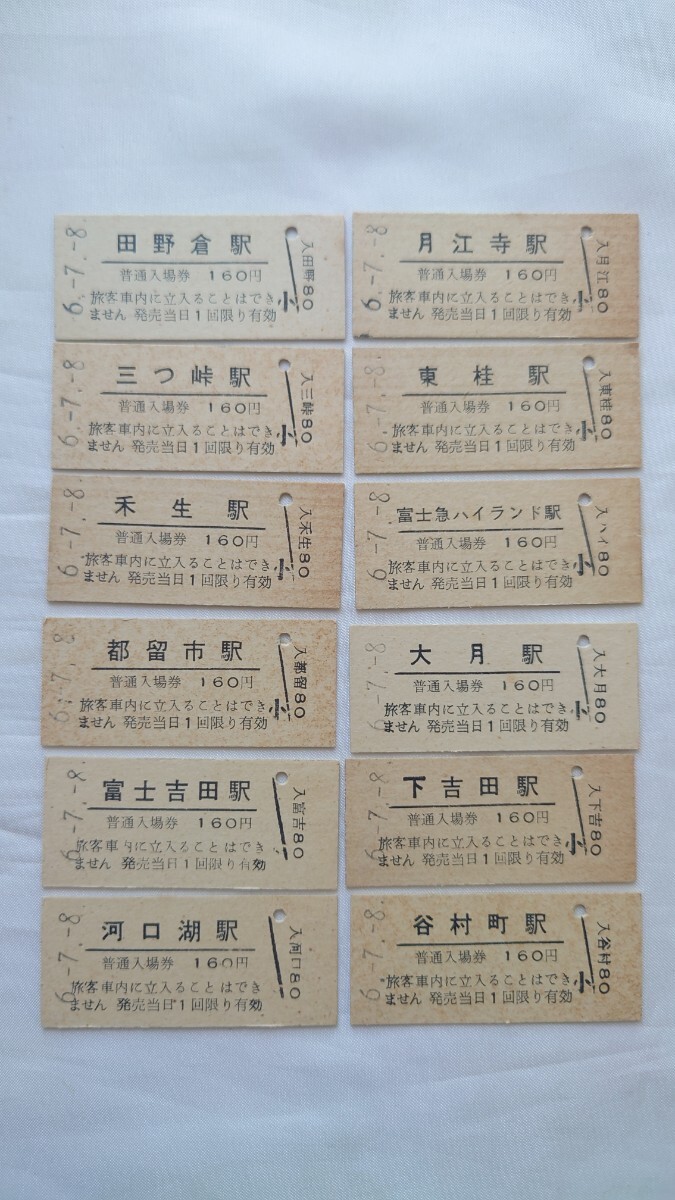 6.-7.-8
田野倉駅
普通入場券 160円
旅客車内に立入ることはでき
ません 発売当日1回限り有効
小
入田野80
6.-7.-8
月江寺駅
普通入場券 160円
旅客車内に立入ることはでき
ません 発売当日1回限り有効
小
入月江80
6.-7.-8
三つ峠駅
普通入場券 160円
旅客車内に立入ることはでき
ません 発売当日1回限り有効
小
入三峠80
6.-7.-8
東桂駅
普通入場券 160円
旅客車内に立入ることはでき
ません 発売当日1回限り有効
小
入東桂80
6.-7.-8
禾生駅
普通入場券 160円
旅客車内に立入ることはでき
ません 発売当日1回限り有効
小
入禾生80
6.-7.-8
富士急ハイランド駅
普通入場券 160円
旅客車内に立入ることはでき
ません 発売当日1回限り有効
小
入ハイ80
6.-7.-8
都留市駅
普通入場券 160円
旅客車内に立入ることはでき
ません 発売当日1回限り有効
小
入都留80
6.-7.-8
大月駅
普通入場券 160円
旅客車内に立入ることはでき
ません 発売当日1回限り有効
小
入大月80
6.-7.-8
富士吉田駅
普通入場券 160円
旅客車内に立入ることはでき
ません 発売当日1回限り有効
入富吉80
6.-7.-8
下吉田駅
普通入場券 160円
旅客車内に立入ることはでき
ません 発売当日1回限り有効
小
入下吉80
6.-7.-8
河口湖駅
普通入場券 160円
旅客車内に立入ることはでき
ません 発売当日1回限り有効
入河口80
6.-7.-8
谷村町駅
普通入場券 160円
旅客車内に立入ることはでき
ません 発売当日1回限り有効
小
入谷村80